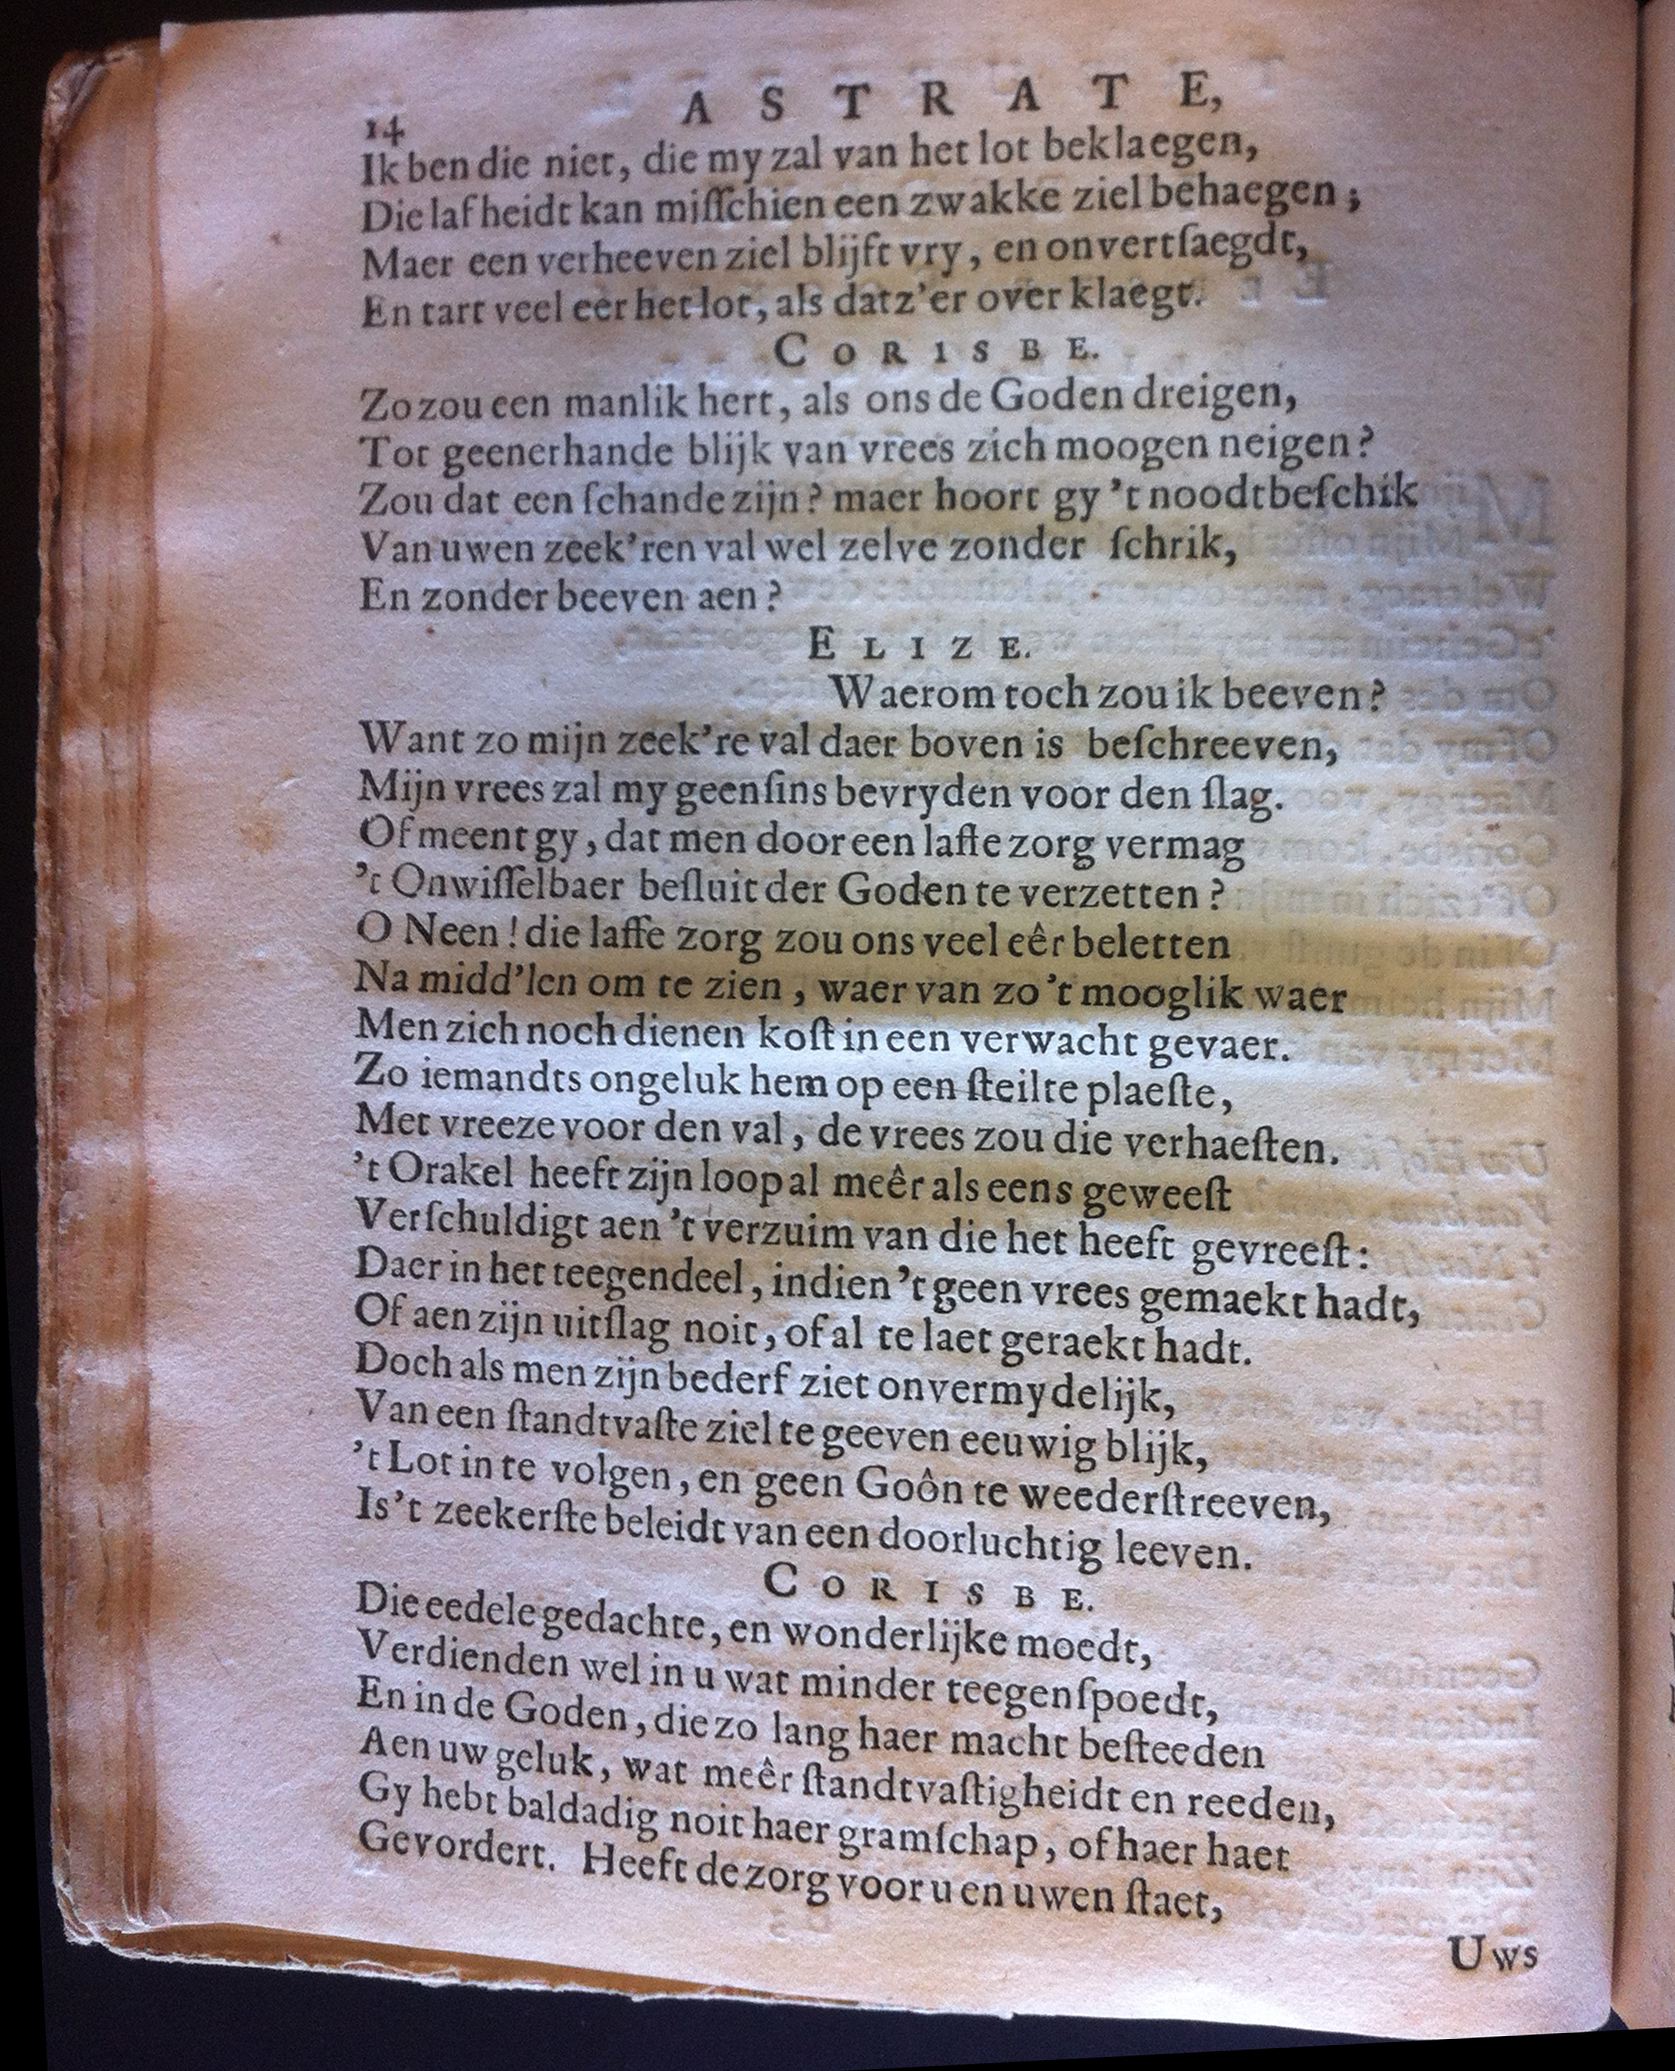 14 ASTRATE,
Ik ben die niet, die my zal van het lot beklaegen,
Die lafheidt kan miſſchien een zwakke ziel behaegen;
Maer een verheeven ziel blijft vry, en onvertſaegdt,
En tart veel eer het lot, als dat z'er over klaegt.
CORISBE.
Zo zou een manlik hert, als ons de Goden dreigen,
Tot geenerhande blijk van vrees zich moogen neigen?
Zou dat een ſchande zijn? maer hoort gy 't noodtbeſchik
Van uwen zeek'ren val wel zelve zonder ſchrik,
En zonder beeven aen?
ELIZE.
Waerom toch zou ik beeven?
Want zo mijn zeek're val daer boven is beſchreeven,
Mijn vrees zal my geenſins bevryden voor den ſlag.
Of meent gy, dat men door een laffe zorg vermag
't Onwiſſelbaer beſluit der Goden te verzetten?
O Neen! die laffe zorg zou ons veel eêr beletten
Na midd'len om te zien, waer van zo 't mooglik waer
Men zich noch dienen koſt in een verwacht gevaer.
Zo iemandts ongeluk hem op een ſteilte plaeſte,
Met vreeze voor den val, de vrees zou die verhaeſten.
't Orakel heeft zijn loop al meêr als eens geweeſt
Verſchuldigt aen 't verzuim van die het heeft gevreeſt:
Daer in het teegendeel, indien 't geen vrees gemaekt hadt,
Of aen zijn uitſlag noit, of al te laet geraekt hadt.
Doch als men zijn bederf ziet onvermydelijk,
Van een ſtandtvaſte ziel te geeven eeuwig blijk,
't Lot in te volgen, en geen Goôn te weederſtreeven,
Is 't zeekerſte beleidt van een doorluchtig leeven.
CORISBE.
Die eedele gedachte, en wonderlijke moedt,
Verdienden wel in u wat minder teegenſpoedt,
En in de Goden, die zo lang haer macht beſteeden
Aen uw geluk, wat meêr ſtandtvaſtigheidt en reeden,
Gy hebt baldadig noit haer gramſchap, of haer haet
Gevordert. Heeft de zorg voor u en uwen ſtaet,
Uws